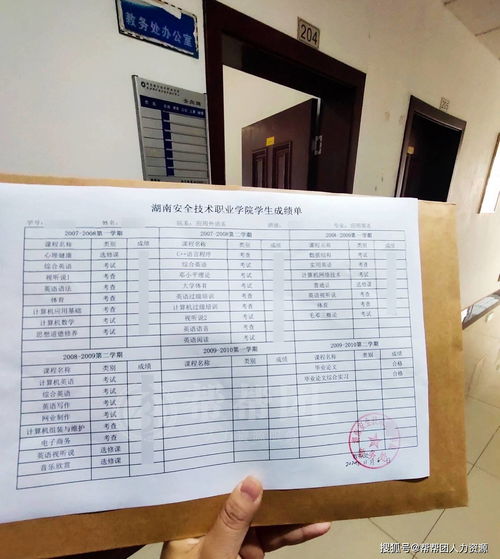 教务处办公室
204
湖南安全技术职业学院学生成绩单
学号: 姓名: 班级: 专业:
2007-2008第一学期 2007-2008第二学期 2008-2009第一学期
课程名称 类别 成绩 课程名称 类别 成绩 课程名称 类别 成绩
心理健康 选修课 C++语言程序 考试 数据结构 考试
综合英语 考试 综合英语 考试 实用英语 考试
视听说1 考查 邓小平理论 考试 计算机网络技术 考查
英语语法 考查 大学体育 考查 普通话 选修课
体育 考查 英语过级培训 考查 英语视听说 考查
计算机应用基础 考查 计算机过级培训 考查 体育 考查
计算机数学 考试 视听说2 考试 毛邓三概论 考试
思想道德修养 考试 英语语音 考查
英语阅读 考试
2008-2009第二学期 2009-2010第一学期 2009-2010第二学期
课程名称 类别 成绩 课程名称 类别 成绩 课程名称 类别 成绩
计算机英语 考试 毕业论文 合格
综合英语 考试 毕业论文综合实习 合格
英语写作 考试
网站制作 考试
计算机组装与维护 考查
电子商务 考查
英语视听说 选修课
音乐欣赏 选修课
搜狐号@帮帮团人力资源